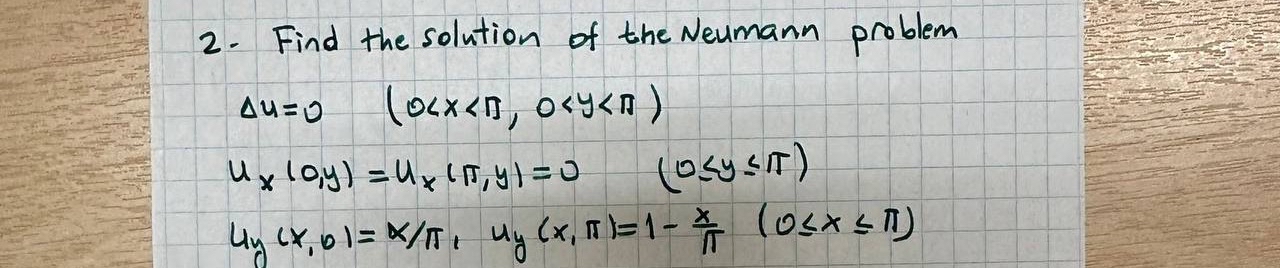 2- Find the solution of the Neumann problem
Δu=0 (0<x<π, 0<y<π)
u_x(0,y)=u_x(π,y)=0 (0≤y≤π)
u_y(x,0)=x/π, u_y(x,π)=1-x/π (0≤x≤π)